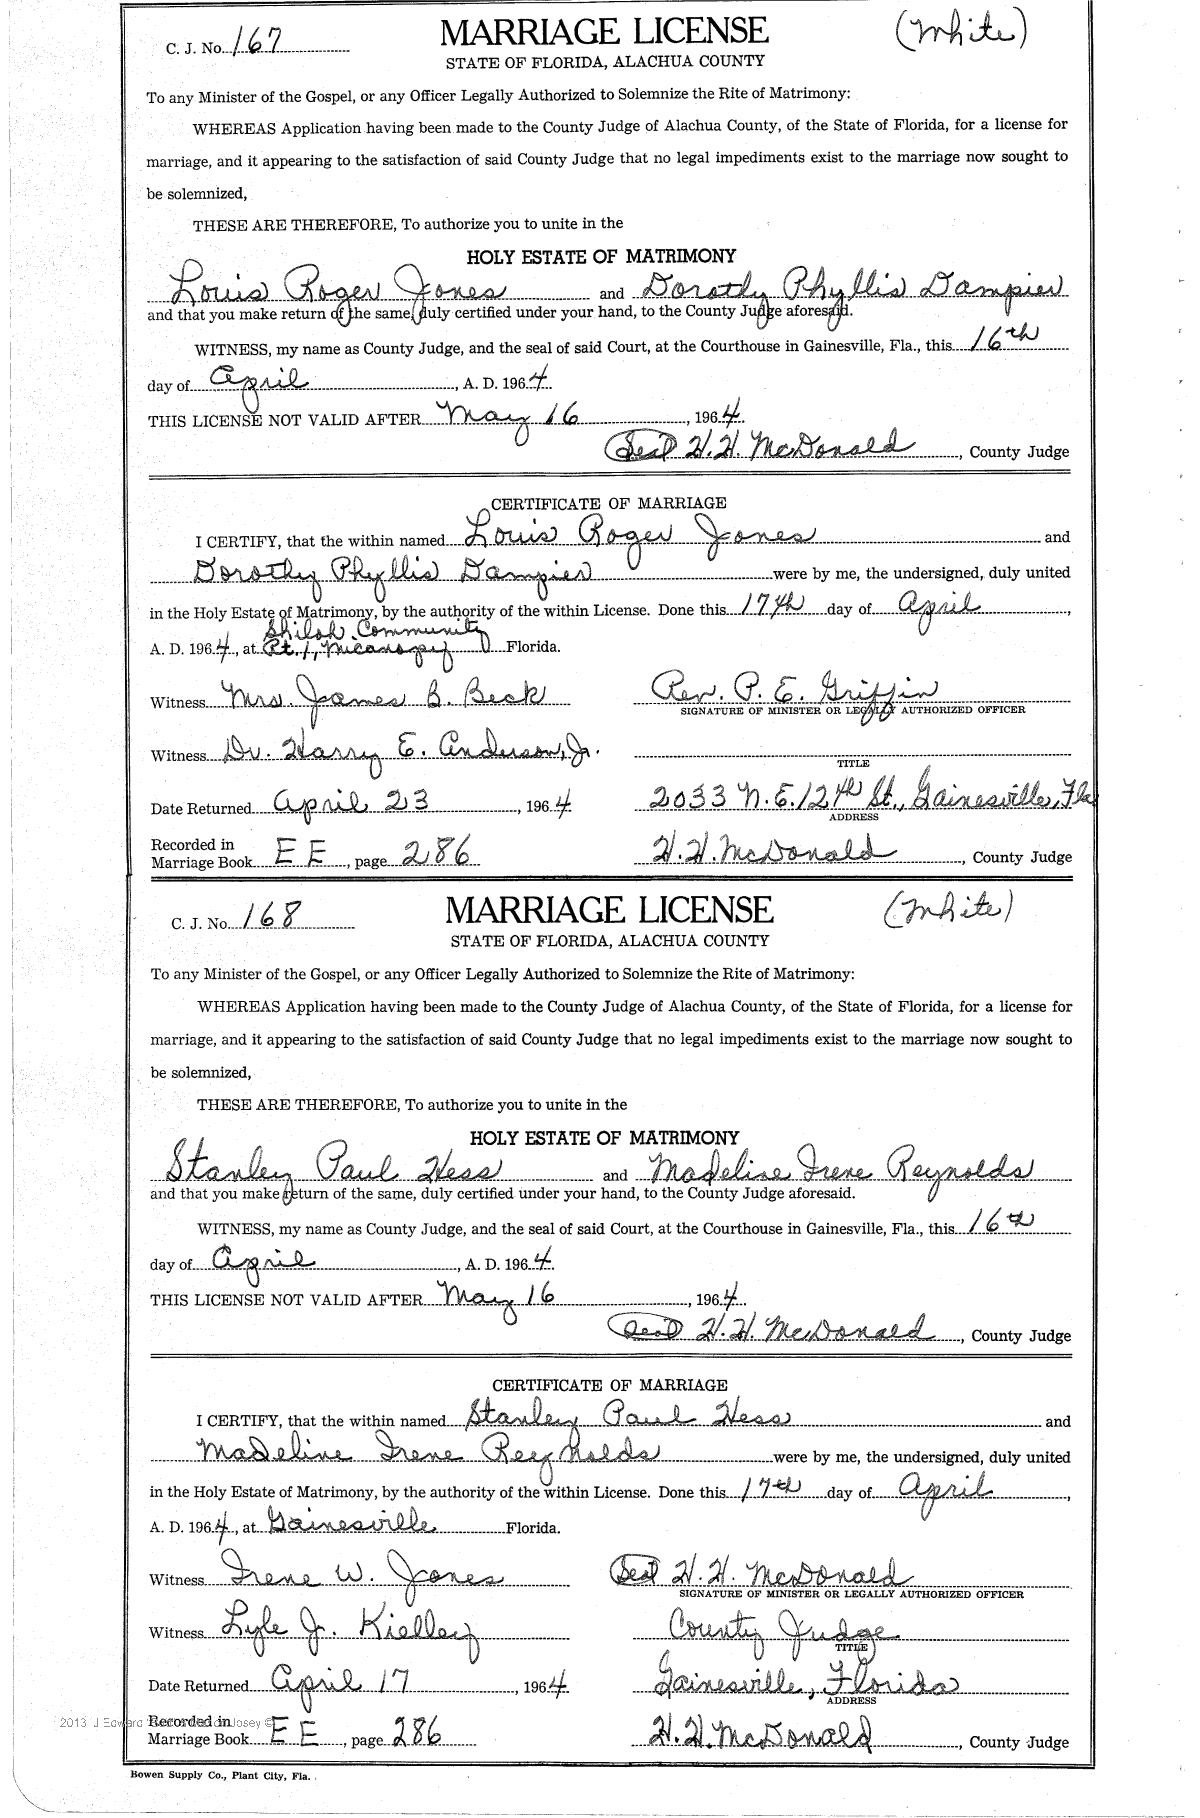 C. J. No. 167 MARRIAGE LICENSE (White)
STATE OF FLORIDA, ALACHUA COUNTY
To any Minister of the Gospel, or any Officer Legally Authorized to Solemnize the Rite of Matrimony:
WHEREAS Application having been made to the County Judge of Alachua County, of the State of Florida, for a license for
marriage, and it appearing to the satisfaction of said County Judge that no legal impediments exist to the marriage now sought to
be solemnized,
THESE ARE THEREFORE, To authorize you to unite in the
HOLY ESTATE OF MATRIMONY
Louis Roger Jones and Dorothy Phyllis Dampier
and that you make return of the same, duly certified under your hand, to the County Judge aforesaid.
WITNESS, my name as County Judge, and the seal of said Court, at the Courthouse in Gainesville, Fla., this 16th
day of April, A. D. 1964.
THIS LICENSE NOT VALID AFTER May 16, 1964.
(Seal) H. H. McDonald, County Judge
CERTIFICATE OF MARRIAGE
I CERTIFY, that the within named Louis Roger Jones and
Dorothy Phyllis Dampier were by me, the undersigned, duly united
in the Holy Estate of Matrimony, by the authority of the within License. Done this 17th day of April,
Shiloh Community
A. D. 1964, at Rt. 1, Micanopy Florida.
Witness Mrs. James B. Beck Rev. P. E. Griffin
SIGNATURE OF MINISTER OR LEGALLY AUTHORIZED OFFICER
Witness Dr. Harry E. Anderson, Jr.
TITLE
Date Returned April 23, 1964. 2033 N.E. 12th St., Gainesville, Fla
ADDRESS
Recorded in
Marriage Book EE, page 286 H. H. McDonald, County Judge
C. J. No. 168 MARRIAGE LICENSE (White)
STATE OF FLORIDA, ALACHUA COUNTY
To any Minister of the Gospel, or any Officer Legally Authorized to Solemnize the Rite of Matrimony:
WHEREAS Application having been made to the County Judge of Alachua County, of the State of Florida, for a license for
marriage, and it appearing to the satisfaction of said County Judge that no legal impediments exist to the marriage now sought to
be solemnized,
THESE ARE THEREFORE, To authorize you to unite in the
HOLY ESTATE OF MATRIMONY
Stanley Paul Hess and Madeline Irene Reynolds
and that you make return of the same, duly certified under your hand, to the County Judge aforesaid.
WITNESS, my name as County Judge, and the seal of said Court, at the Courthouse in Gainesville, Fla., this 16th
day of April, A. D. 1964.
THIS LICENSE NOT VALID AFTER May 16, 1964.
(Seal) H. H. McDonald, County Judge
CERTIFICATE OF MARRIAGE
I CERTIFY, that the within named Stanley Paul Hess and
Madeline Irene Reynolds were by me, the undersigned, duly united
in the Holy Estate of Matrimony, by the authority of the within License. Done this 17th day of April,
A. D. 1964, at Gainesville Florida.
Witness Irene W. Jones (Seal) H. H. McDonald
SIGNATURE OF MINISTER OR LEGALLY AUTHORIZED OFFICER
Witness Lyle J. Kielley County Judge
TITLE
Date Returned April 17, 1964. Gainesville, Florida
ADDRESS
2013 J Edward Josey ©
Recorded in
Marriage Book EE, page 286 H. H. McDonald, County Judge
Bowen Supply Co., Plant City, Fla.